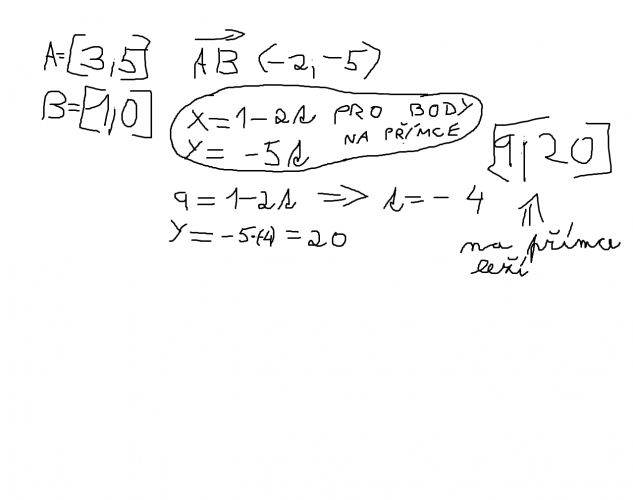 A=[3,5] AB (-2,-5)
B=[1,0]
x=1-2s PRO BODY
y= -5s NA PŘÍMCE
[9,20]
9=1-2s => s=-4
y=-5·(-4)=20
na přímce
leží